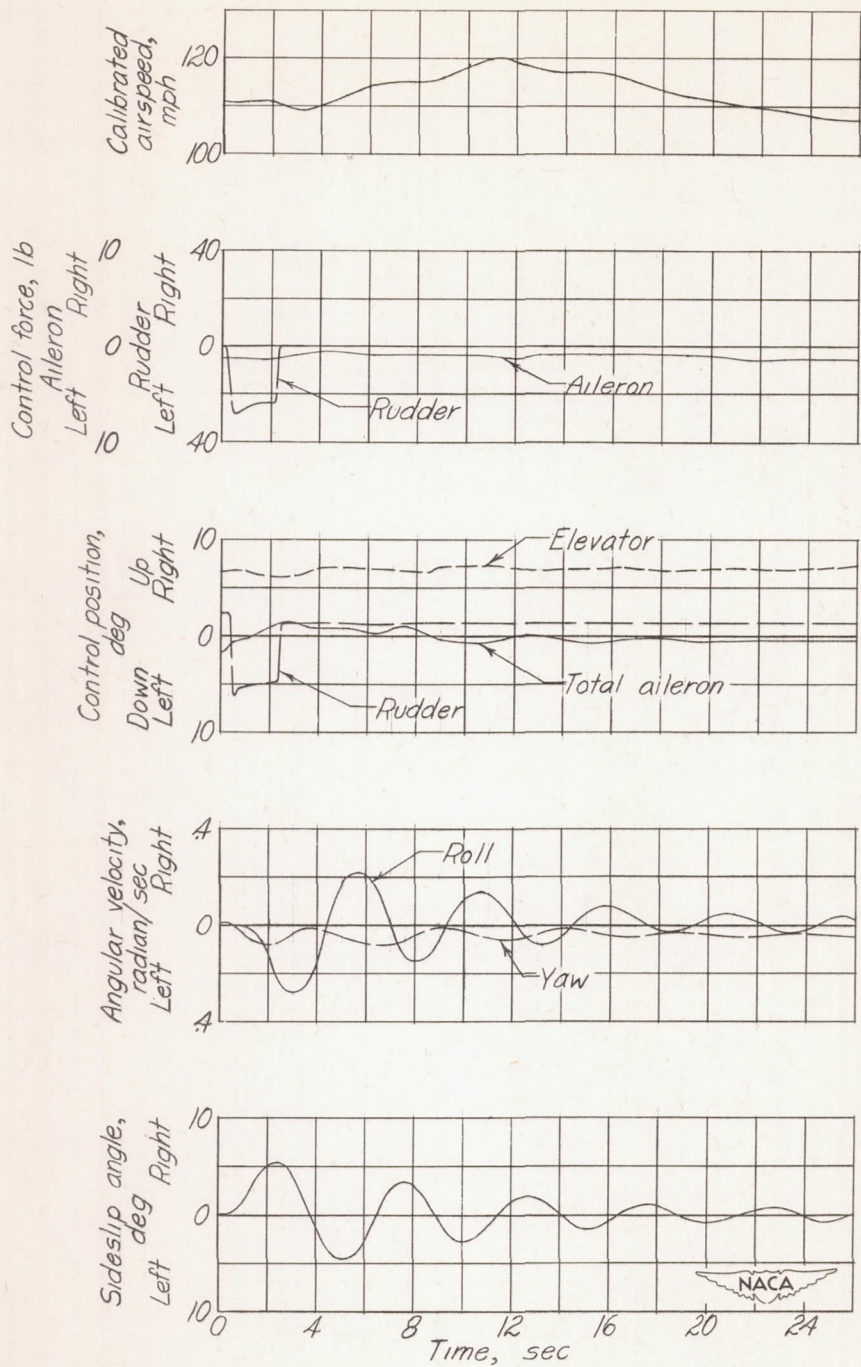 Calibrated
airspeed,
mph
120
100
Control force, lb
Aileron
Left Right
10
0
10
Rudder
Left Right
40
0
40
Rudder
Aileron
Control position,
deg
Down Up
Left Right
10
0
10
Elevator
Total aileron
Rudder
Angular velocity,
radian/sec
Left Right
.4
0
.4
Roll
Yaw
Sideslip angle,
deg
Left Right
10
0
10
NACA
0 4 8 12 16 20 24
Time, sec